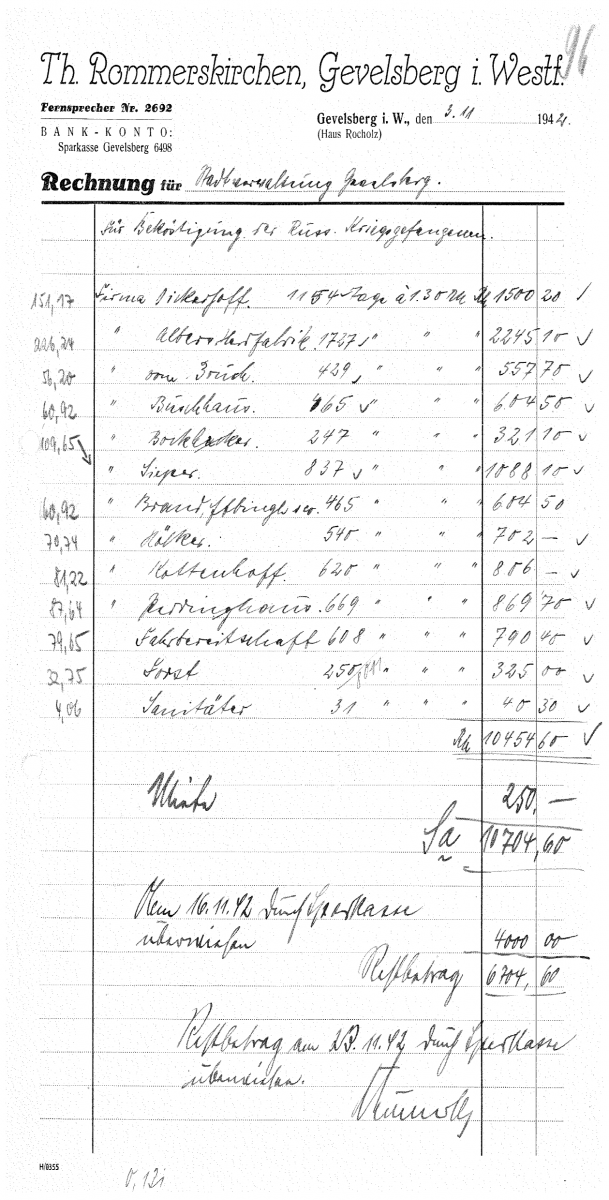 96
Th. Rommerskirchen, Gevelsberg i. Westf.
Fernsprecher Nr. 2692
BANK-KONTO:
Sparkasse Gevelsberg 6498
Gevelsberg i. W., den 3.11 1942.
(Haus Rocholz)
Rechnung für Stadtverwaltung Gevelsberg.
Für Beköstigung der Russ. Kriegsgefangenen.
151,17 Firma Dickerhoff. 1154 Tage à 1.30 Rm Rm 1500 20 ✓
226,24 " Albers Herdfabrik. 1727 ✓ " " " 2245 10 ✓
56,20 " vom Bruch. 429 ✓ " " " 557 70 ✓
60,92 " Buschhaus. 465 ✓ " " " 604 50 ✓
109,65 " 247 " " " 321 10 ✓
" Sieper. 837 ✓ " " " 1088 10 ✓
60,92 " Brand, 465 " " " 604 50
70,74 " Hölker. 540 " " " 702 — ✓
81,22 " Kottenhoff. 620 " " " 806 — ✓
87,64 " Perringhaus. 669 " " " 869 70 ✓
79,65 Fahrbereitschaft 608 " " " 790 40 ✓
32,75 Forst 250 " " " 325 00 ✓
4,06 Sanitäter 31 " " " 40 30 ✓
Rm 10454 60 ✓
Miete 250,—
Sa 10704,60
16.11.42 durch Sparkasse
überwiesen 4000 00
Restbetrag 6704,60
Restbetrag am 23.11.42 durch Sparkasse
überwiesen.
H/0355